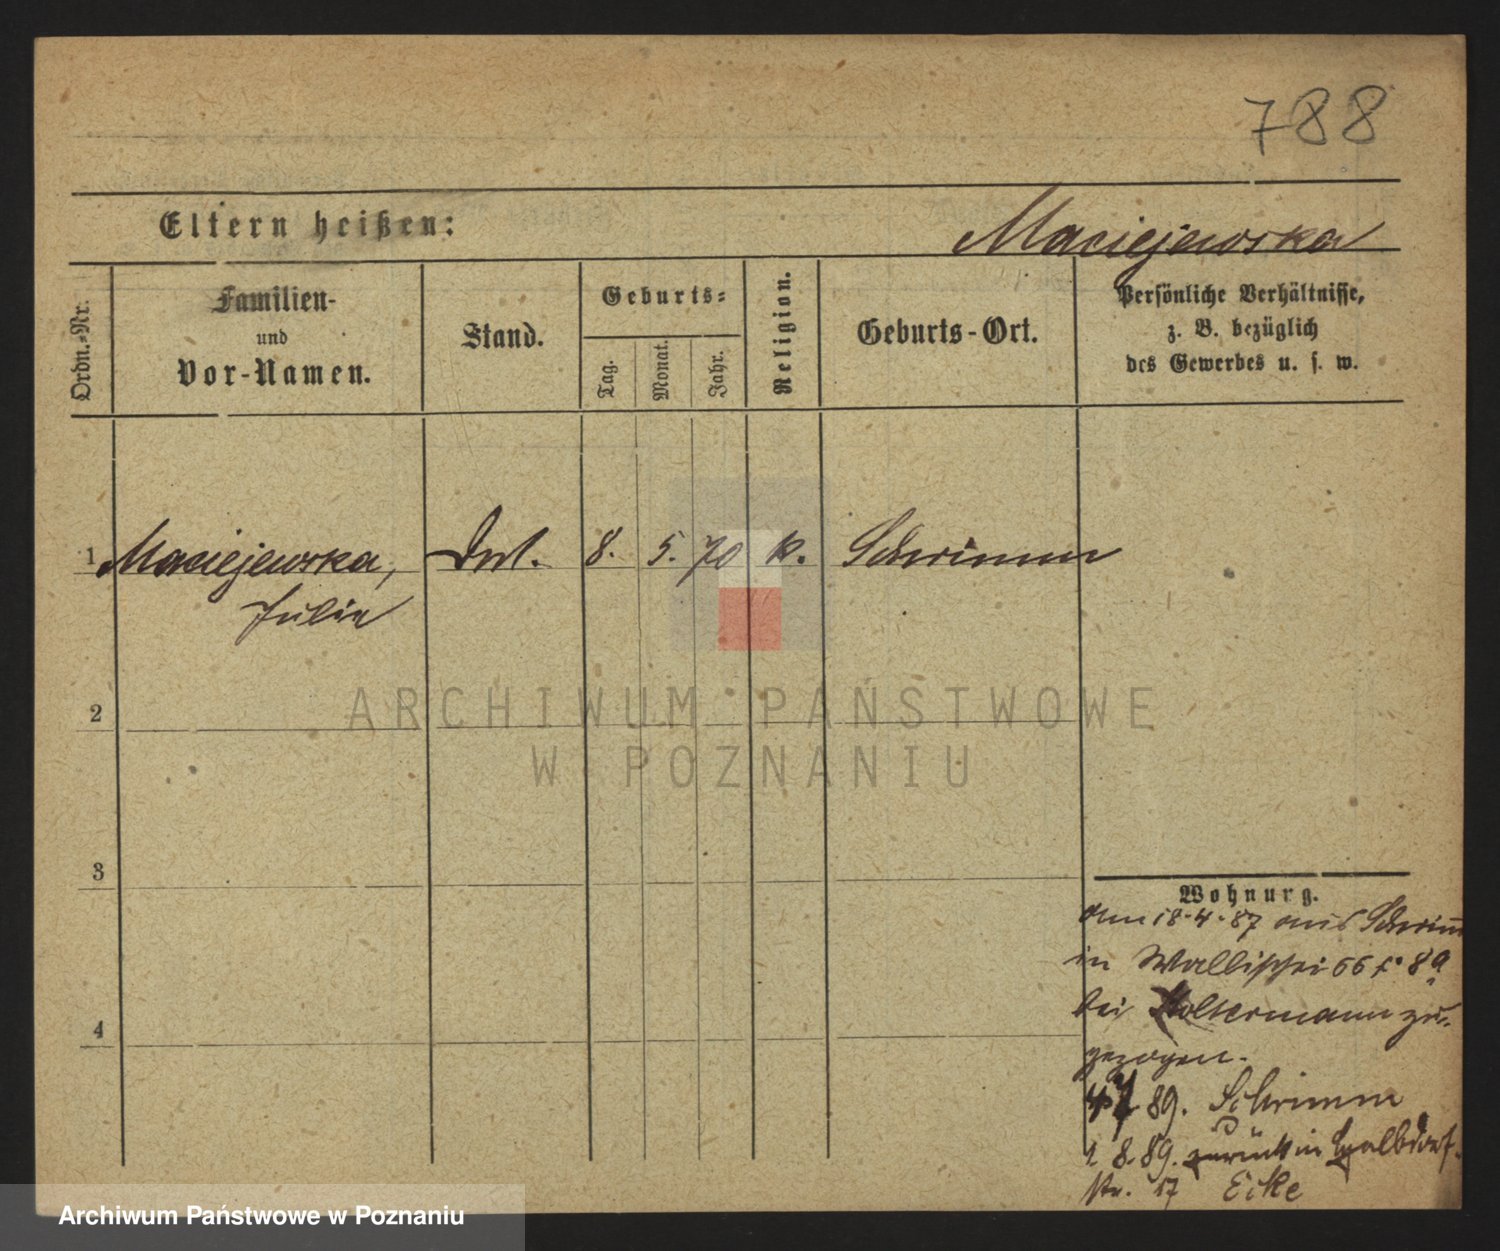 788
Eltern heißen:
Maciejewska
Ordn.-Nr.
Familien-
und
Vor-Namen.
Stand.
Geburts-
Tag.
Monat.
Jahr.
Religion.
Geburts-Ort.
Persönliche Verhältnisse,
z. B. bezüglich
des Gewerbes u. s. w.
1 Maciejewska, 8. 5. 70 k. Schrimm
Julie
2
ARCHIWUM PAŃSTWOWE
W POZNANIU
3
4
Wohnung.
18.4.87 aus Schrimm
in Wallischei 66
bei zu-
gezogen.
89. Schrimm
1. 8. 89. zurück in Halbdorf-
str. 17 Ecke
Archiwum Państwowe w Poznaniu